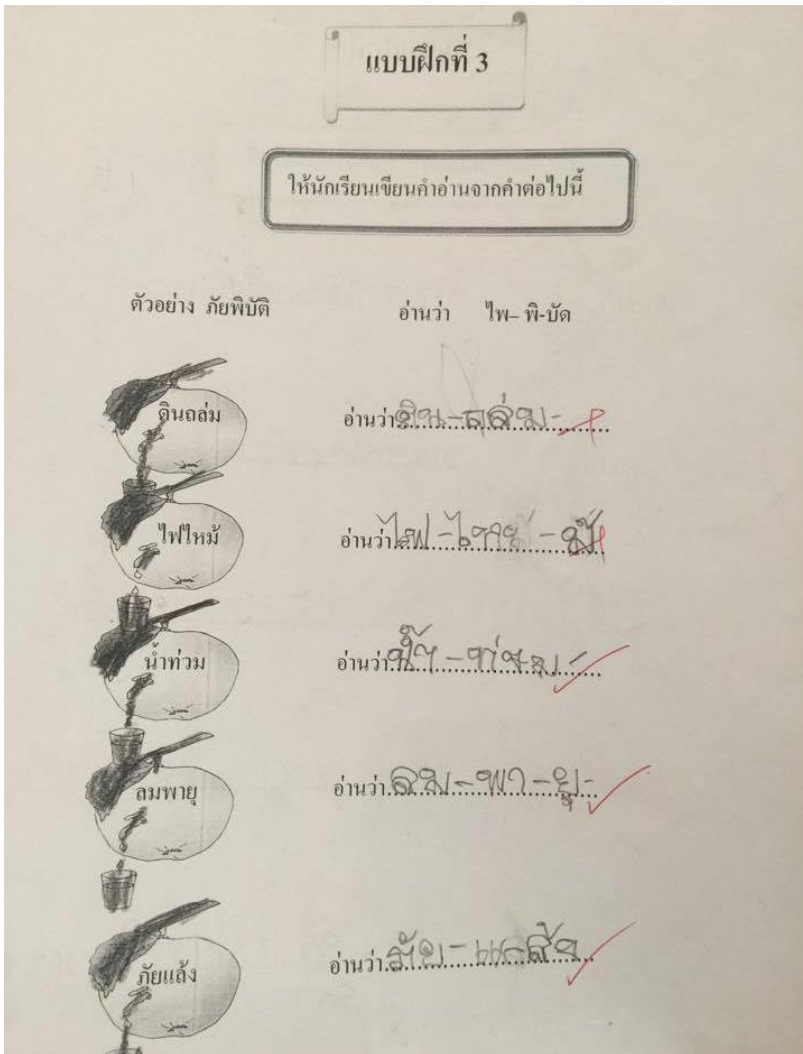 แบบฝึกที่ 3
ให้นักเรียนเขียนคำอ่านจากคำต่อไปนี้
ตัวอย่าง ภัยพิบัติ อ่านว่า ไพ– พิ-บัด
ดินถล่ม อ่านว่า ดิน-ถล่ม-
ไฟไหม้ อ่านว่า ไฟ-ไหม้-
น้ำท่วม อ่านว่า น้ำ-ท่วม
ลมพายุ อ่านว่า ลม-พา-ยุ-
ภัยแล้ง อ่านว่า ภัย-แล้ง